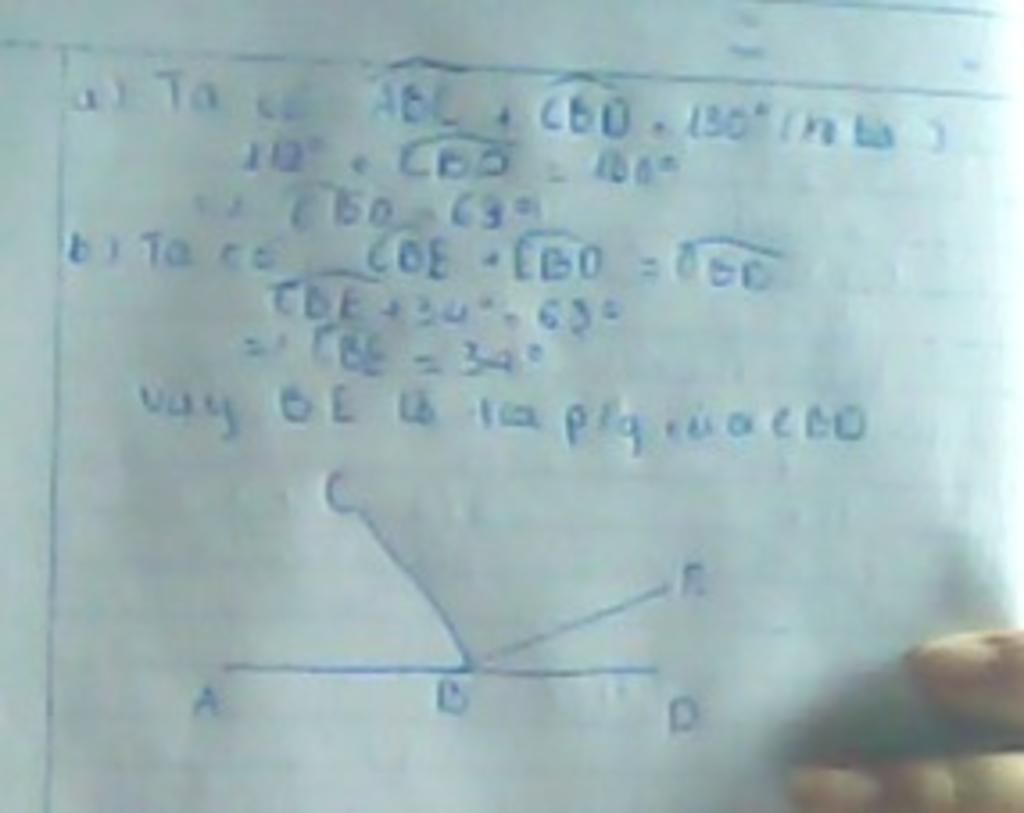 a) Ta có ABC + CBD = 180° (
+ CBD = 180°
=> CBD = 68°
b) Ta có CBE + EBD = CBD
CBE + 34° = 68°
=> CBE = 34°
Vậy BE là tia p/g của CBD
C
E
A B D